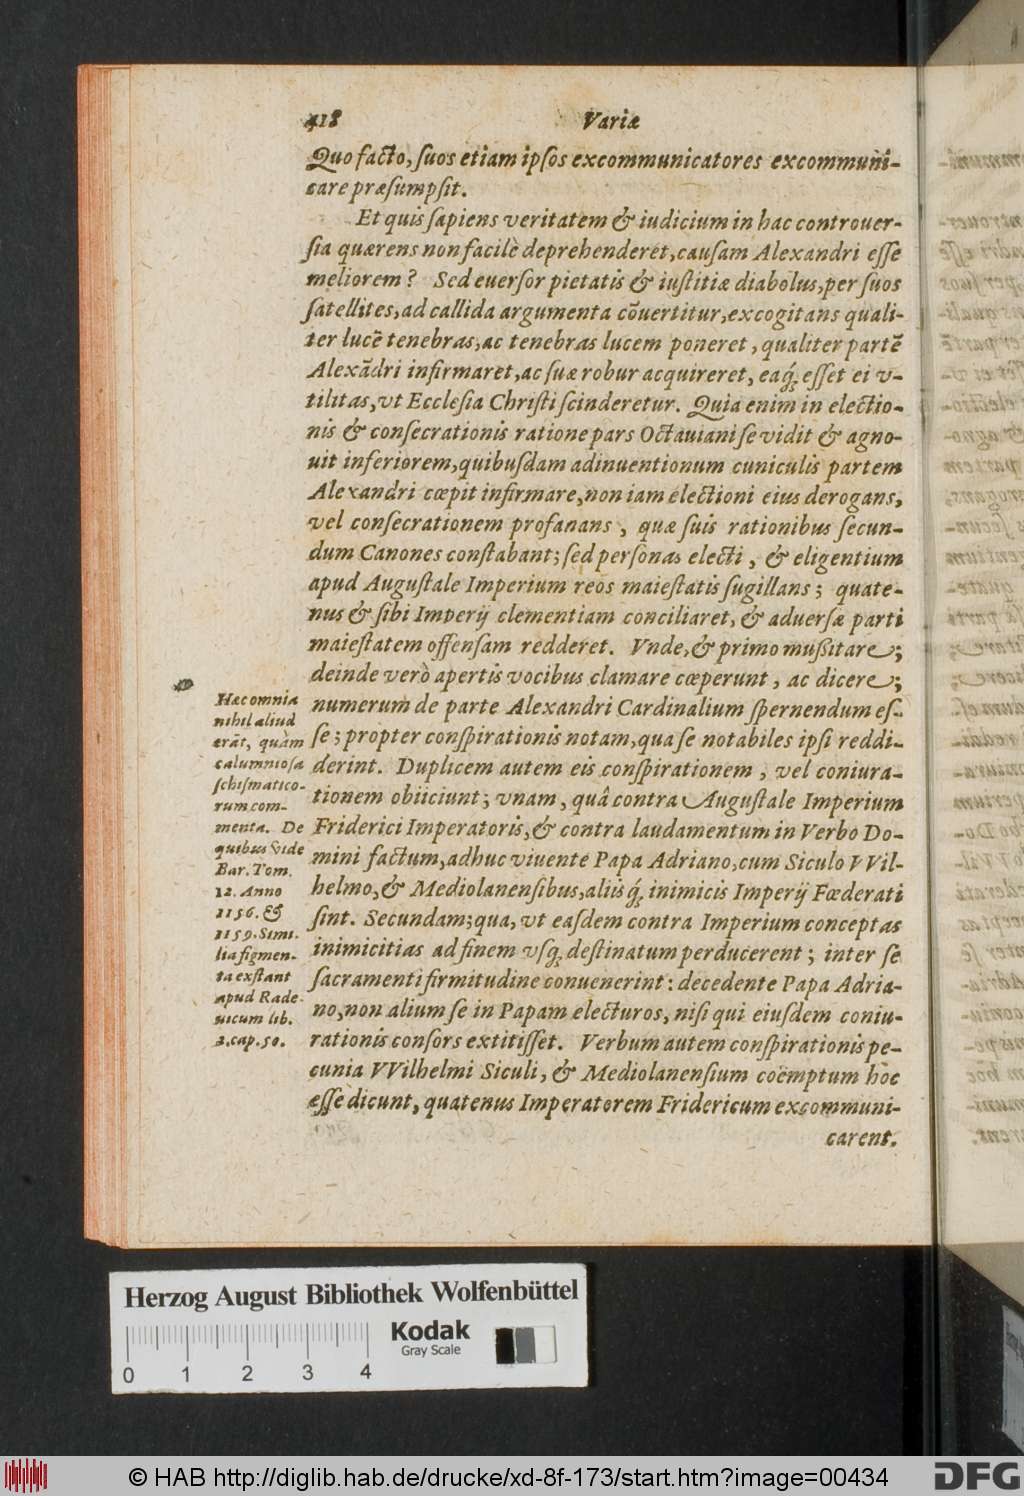 418 Variæ
Quo facto, ſuos etiam ipſos excommunicatores excommuni-
care præſumpſit.
Et quis ſapiens veritatem & iudicium in hac controuer-
ſia quærens non facilè deprehenderet, cauſam Alexandri eſſe
meliorem? Sed euerſor pietatis & iuſtitiæ diabolus, per ſuos
ſatellites, ad callida argumenta cõuertitur, excogitans quali-
ter lucẽ tenebras, ac tenebras lucem poneret, qualiter partẽ
Alexãdri infirmaret, ac ſuæ robur acquireret, eaq́; eſſet ei v-
tilitas, vt Eccleſia Chriſti ſcinderetur. Quia enim in electio-
nis & conſecrationis ratione pars Octauiani ſe vidit & agno-
uit inferiorem, quibuſdam adinuentionum cuniculis partem
Alexandri cœpit infirmare, non iam electioni eius derogans,
vel conſecrationem profanans, quæ ſuis rationibus ſecun-
dum Canones conſtabant; ſed perſonas electi, & eligentium
apud Auguſtale Imperium reos maieſtatis ſugillans; quate-
nus & ſibi Imperij clementiam conciliaret, & aduerſæ parti
maieſtatem offenſam redderet. Vnde, & primo muſſitare;
deinde verò apertis vocibus clamare cœperunt, ac dicere;
numerum de parte Alexandri Cardinalium ſpernendum eſ-
ſe; propter conſpirationis notam, qua ſe notabiles ipſi reddi-
derint. Duplicem autem eis conſpirationem, vel coniura-
tionem obiiciunt; vnam, quâ contra Auguſtale Imperium
Friderici Imperatoris, & contra laudamentum in Verbo Do-
mini factum, adhuc viuente Papa Adriano, cum Siculo VVil-
helmo, & Mediolanenſibus, aliis q́; inimicis Imperij Fœderati
ſint. Secundam; qua, vt eaſdem contra Imperium conceptas
inimicitias ad finem vſq́; deſtinatum perducerent; inter ſe
ſacramenti firmitudine conuenerint: decedente Papa Adria-
no, non alium ſe in Papam electuros, niſi qui eiuſdem coniu-
rationis conſors extitiſſet. Verbum autem conſpirationis pe-
cunia VVilhelmi Siculi, & Mediolanenſium coëmptum hoc
eſſe dicunt, quatenus Imperatorem Fridericum excommuni-
carent.
Hæc omnia
nihil aliud
erãt, quàm
calumnioſa
ſchiſmatico-
rum com-
menta. De
quibus vide
Bar. Tom.
12. Anno
1156. &
1159. Simi-
lia figmen-
ta exſtant
apud Rade-
uicum lib.
2. cap. 50.
Herzog August Bibliothek Wolfenbüttel
Kodak
Gray Scale
0 1 2 3 4
© HAB http://diglib.hab.de/drucke/xd-8f-173/start.htm?image=00434
DFG